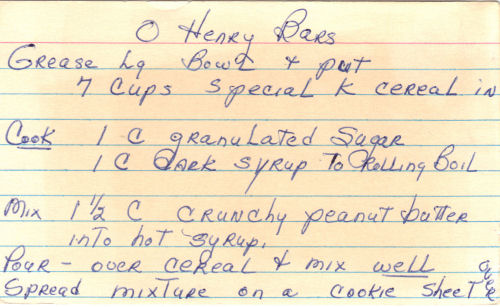 O Henry Bars
Grease Lg Bowl + put
7 Cups Special K cereal in
Cook 1 C granulated Sugar
1 C Dark syrup To Rolling Boil
Mix 1 1/2 C crunchy peanut butter
into hot syrup.
Pour - over cereal + mix well
Spread mixture on a cookie sheet
over